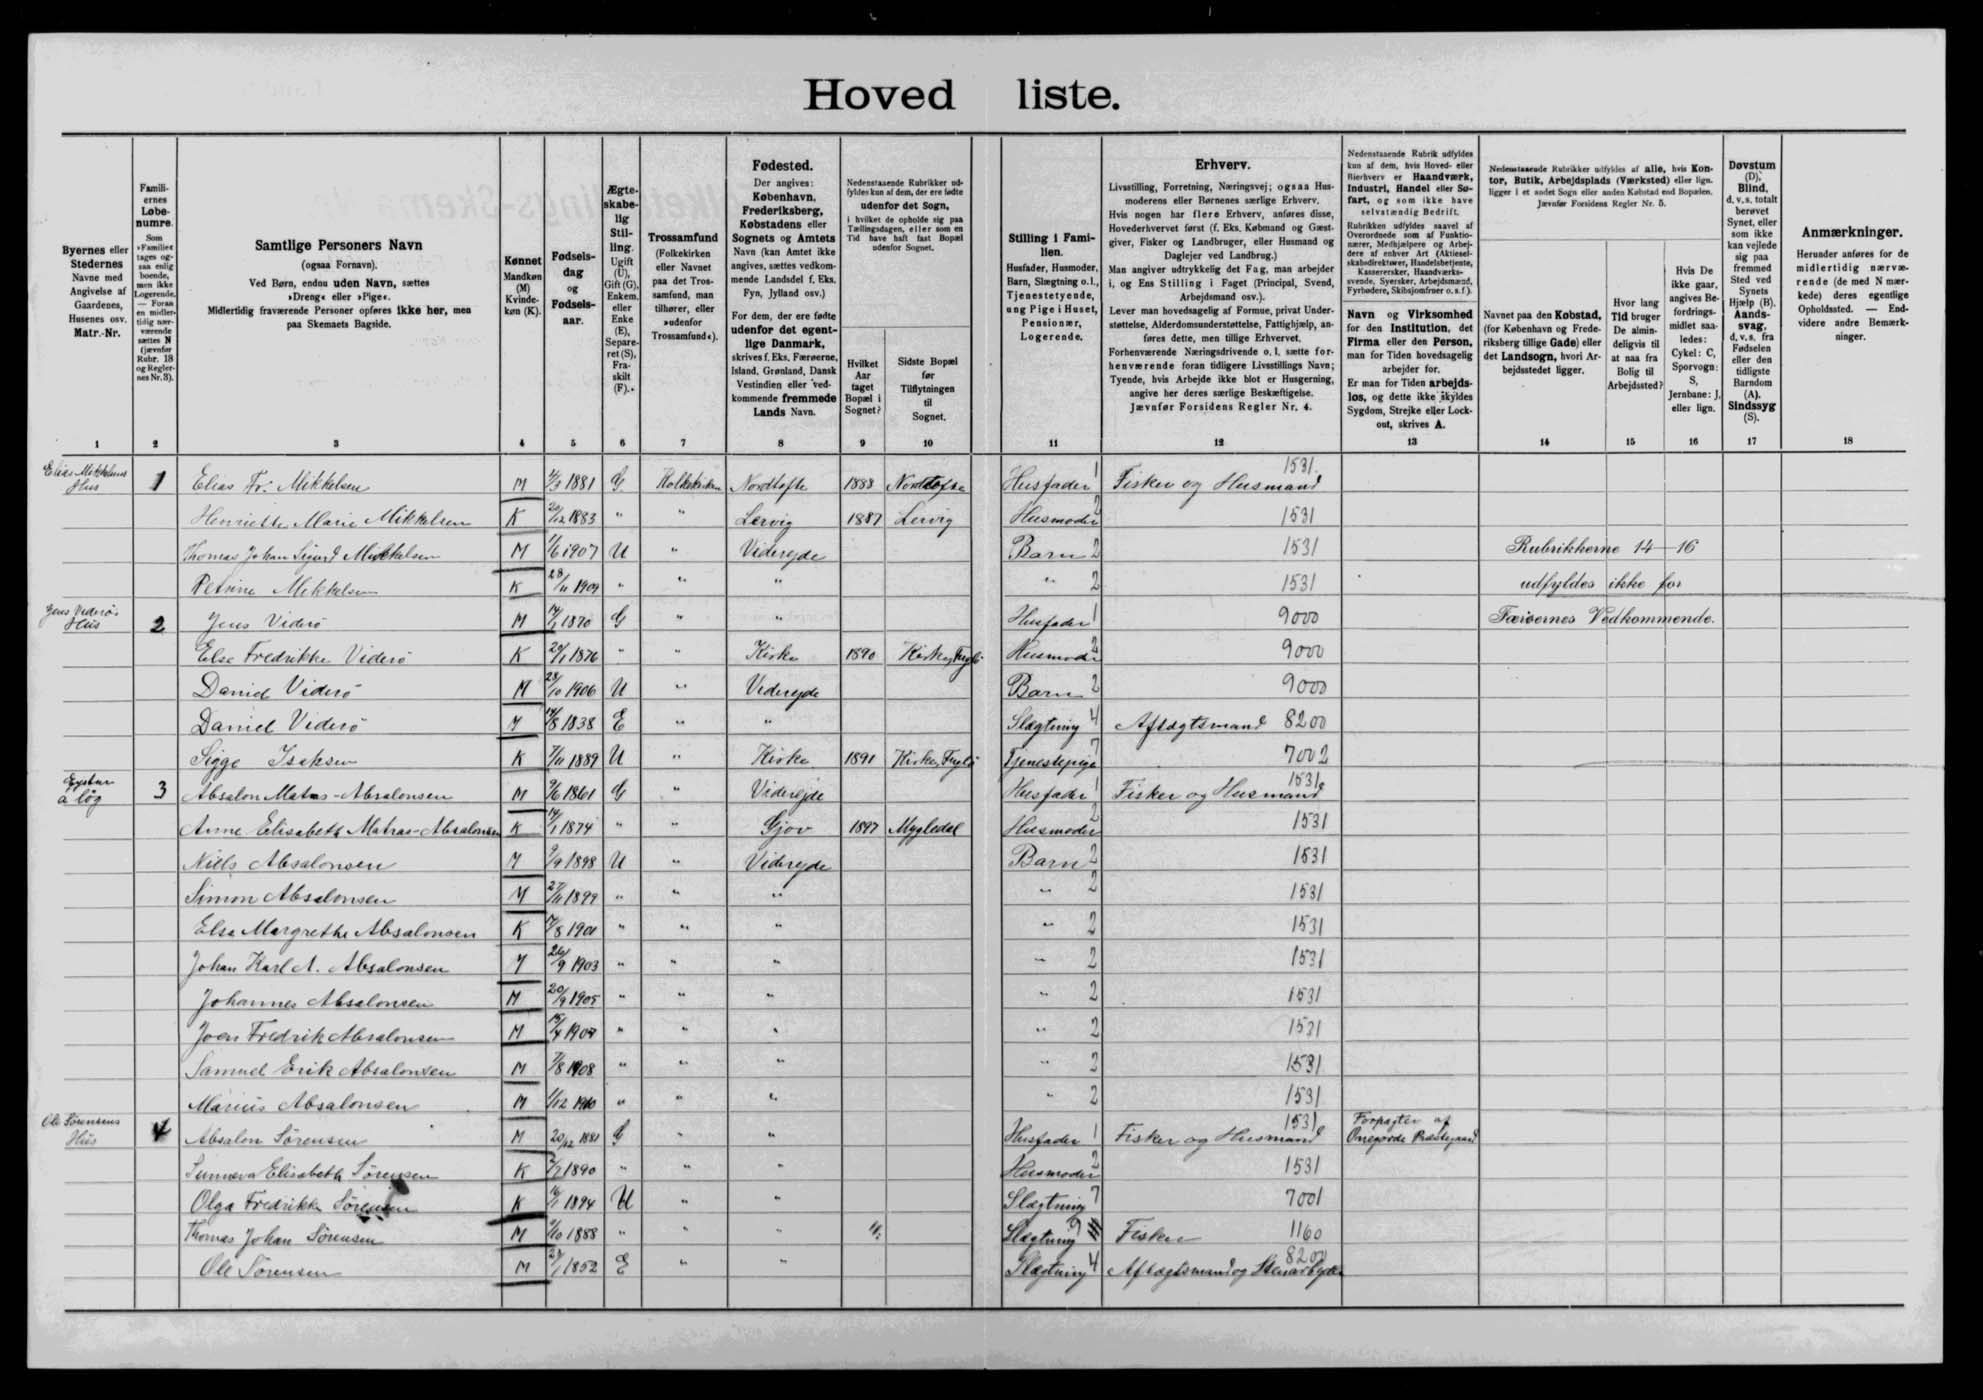 Hoved liste.
Byernes eller Stedernes Navne med Angivelse af Gaardenes, Husenes osv. Matr.-Nr.
Famili-
ernes
Løbe-
numre.
Som »Familie« tages og-
saa enlig boende, men ikke Logerende. — Foran en midler-
tidig nær-
værende sættes N (jævnfør Rubr. 18 og Regler-
nes Nr. 3).
Samtlige Personers Navn
(ogsaa Fornavn).
Ved Børn, endnu uden Navn, sættes
»Dreng« eller »Pige«.
Midlertidig fraværende Personer opføres ikke her, men
paa Skemaets Bagside.
Kønnet
Mandkøn
(M)
Kvinde-
køn (K).
Fødsels-
dag
og
Fødsels-
aar.
Ægte-
skabe-
lig
Stil-
ling.
Ugift
(U),
Gift (G),
Enkem.
eller
Enke
(E),
Separe-
ret (S),
Fra-
skilt
(F).
Trossamfund
(Folkekirken
eller Navnet
paa det Tros-
samfund, man
tilhører, eller
»udenfor
Trossamfund«).
Fødested.
Der angives:
København,
Frederiksberg,
Købstadens eller
Sognets og Amtets
Navn (kan Amtet ikke
angives, sættes vedkom-
mende Landsdel f. Eks.
Fyn, Jylland osv.)
For dem, der ere fødte
udenfor det egent-
lige Danmark,
skrives f. Eks. Færøerne,
Island, Grønland, Dansk
Vestindien eller ved-
kommende fremmede
Lands Navn.
Nedenstaaende Rubrikker ud-
fyldes kun af dem, der ere fødte
udenfor det Sogn,
i hvilket de opholde sig paa
Tællingsdagen, eller som en
Tid have haft fast Bopæl
udenfor Sognet.
Hvilket
Aar
taget
Bopæl i
Sognet?
Sidste Bopæl
før
Tilflytningen
til
Sognet.
Stilling i Fami-
lien.
Husfader, Husmoder,
Barn, Slægtning o.l.,
Tjenestetyende,
ung Pige i Huset,
Pensionær,
Logerende.
Erhverv.
Livsstilling, Forretning, Næringsvej; ogsaa Hus-
moderens eller Børnenes særlige Erhverv.
Hvis nogen har flere Erhverv, anføres disse,
Hovederhvervet først (f. Eks. Købmand og Gæst-
giver, Fisker og Landbruger, eller Husmand og
Daglejer ved Landbrug.)
Man angiver udtrykkelig det Fag, man arbejder
i, og Ens Stilling i Faget (Principal, Svend,
Arbejdsmand osv.).
Lever man hovedsagelig af Formue, privat Under-
støttelse, Alderdomsunderstøttelse, Fattighjælp, an-
føres dette, men tillige Erhvervet.
Forhenværende Næringsdrivende o. l. sætte for-
henværende foran tidligere Livsstillings Navn;
Tyende, hvis Arbejde ikke blot er Husgerning,
angive her deres særlige Beskæftigelse.
Jævnfør Forsidens Regler Nr. 4.
Nedenstaaende Rubrik udfyldes
kun af dem, hvis Hoved- eller
Bierhverv er Haandværk,
Industri, Handel eller Sø-
fart, og som ikke have
selvstændig Bedrift.
Rubrikken udfyldes saavel af
Overordnede som af Funktio-
nærer, Medhjælpere og Arbej-
dere af enhver Art (Aktiesel-
skabsdirektører, Handelsbetjente,
Kasserersker, Haandværks-
svende, Syersker, Arbejdsmænd,
Fyrbødere, Skibsjomfruer o. s. f.).
Navn og Virksomhed
for den Institution, det
Firma eller den Person,
man for Tiden hovedsagelig
arbejder for.
Er man for Tiden arbejds-
løs, og dette ikke skyldes
Sygdom, Strejke eller Lock-
out, skrives A.
Nedenstaaende Rubrikker udfyldes af alle, hvis Kon-
tor, Butik, Arbejdsplads (Værksted) eller lign.
ligger i et andet Sogn eller anden Købstad end Bopælen.
Jævnfør Forsidens Regler Nr. 5.
Navnet paa den Købstad,
(for København og Frede-
riksberg tillige Gade) eller
det Landsogn, hvori Ar-
bejdsstedet ligger.
Hvor lang
Tid bruger
De almin-
deligvis til
at naa fra
Bolig til
Arbejdssted?
Hvis De
ikke gaar,
angives Be-
fordrings-
midlet saa-
ledes:
Cykel: C,
Sporvogn:
S,
Jernbane: J,
eller lign.
Døvstum
(D),
Blind,
d. v. s. totalt
berøvet
Synet, eller
som ikke
kan vejlede
sig paa
fremmed
Sted ved
Synets
Hjælp (B).
Aands-
svag,
d. v. s. fra
Fødselen
eller den
tidligste
Barndom
(A).
Sindssyg
(S).
Anmærkninger.
Herunder anføres for de
midlertidig nærvæ-
rende (de med N mær-
kede) deres egentlige
Opholdssted. — End-
videre andre Bemærk-
ninger.
1 2 3 4 5 6 7 8 9 10 11 12 13 14 15 16 17 18
Elias Mikkelsens Hus 1 Elias Fr. Mikkelsen M 4/3 1881 G Folkekirken Nordtofte 1888 Nordtofte Husfader 1 Fisker og Husmand 1531.
Henriette Marie Mikkelsen K 20/12 1883 " " Lervig 1887 Lervig Husmoder 2 1531
Thomas Johan Sigurd Mikkelsen M 1/6 1907 U " Viderejde Barn 2 1531 Rubrikkerne 14-16
Petrine Mikkelsen K 28/11 1909 " " " " 2 1531 udfyldes ikke for
Jens Viderøs Hus 2 Jens Viderø M 14/1 1870 G " " Husfader 1 9000 Færøernes Vedkommende.
Else Fredrikke Viderø K 20/1 1876 " " Kirke 1890 Kirke, Fuglø Husmoder 2 9000
Daniel Viderø M 28/10 1906 U " Viderejde Barn 2 9000
Daniel Viderø M 14/8 1838 E " " Slægtning 4 Aftægtsmand 8200
Sigge Isaksen K 7/11 1889 U " Kirke 1891 Kirke, Fuglø Tjenestepige 7 7002
Eystur á løg 3 Absalon Matras-Absalonsen M 9/6 1861 G " Viderejde Husfader 1 Fisker og Husmand 1531
Anne Elisabeth Matras-Absalonsen K 14/1 1874 " " Gjov 1897 Mygledal Husmoder 2 1531
Niels Absalonsen M 9/9 1898 U " Viderejde Barn 2 1531
Simon Absalonsen M 27/11 1899 " " " " 2 1531
Else Margrethe Absalonsen K 17/8 1901 " " " " 2 1531
Johan Karl A. Absalonsen M 26/9 1903 " " " " 2 1531
Johannes Absalonsen M 20/9 1905 " " " " 2 1531
Joen Fredrik Absalonsen M 15/4 1907 " " " " 2 1531
Samuel Erik Absalonsen M 7/8 1908 " " " " 2 1531
Marius Absalonsen M 1/12 1910 " " " " 2 1531
Ole Sørensens Hus 4 Absalon Sørensen M 20/12 1881 G " " Husfader 1 Fisker og Husmand 1531 Forpagter af Onegærde Præstegaard
Sunneva Elisabeth Sørensen K 2/7 1890 " " " Husmoder 2 1531
Olga Fredrikke Sørensen K 16/1 1894 U " " Slægtning 7 7001
Thomas Johan Sørensen M 9/10 1888 " " " Slægtning 9 Fisker 1160
Ole Sørensen M 27/1 1852 E " " Slægtning 4 Aftægtsmand og Stenarbejder 8200